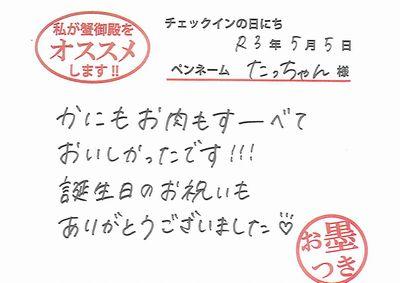 私が蟹御殿を
オススメ
します!!
チェックインの日にち
R3年5月5日
ペンネーム たっちゃん 様
かにもお肉もすーべて
おいしかったです!!!
誕生日のお祝いも
ありがとうございました♡
お墨
つき